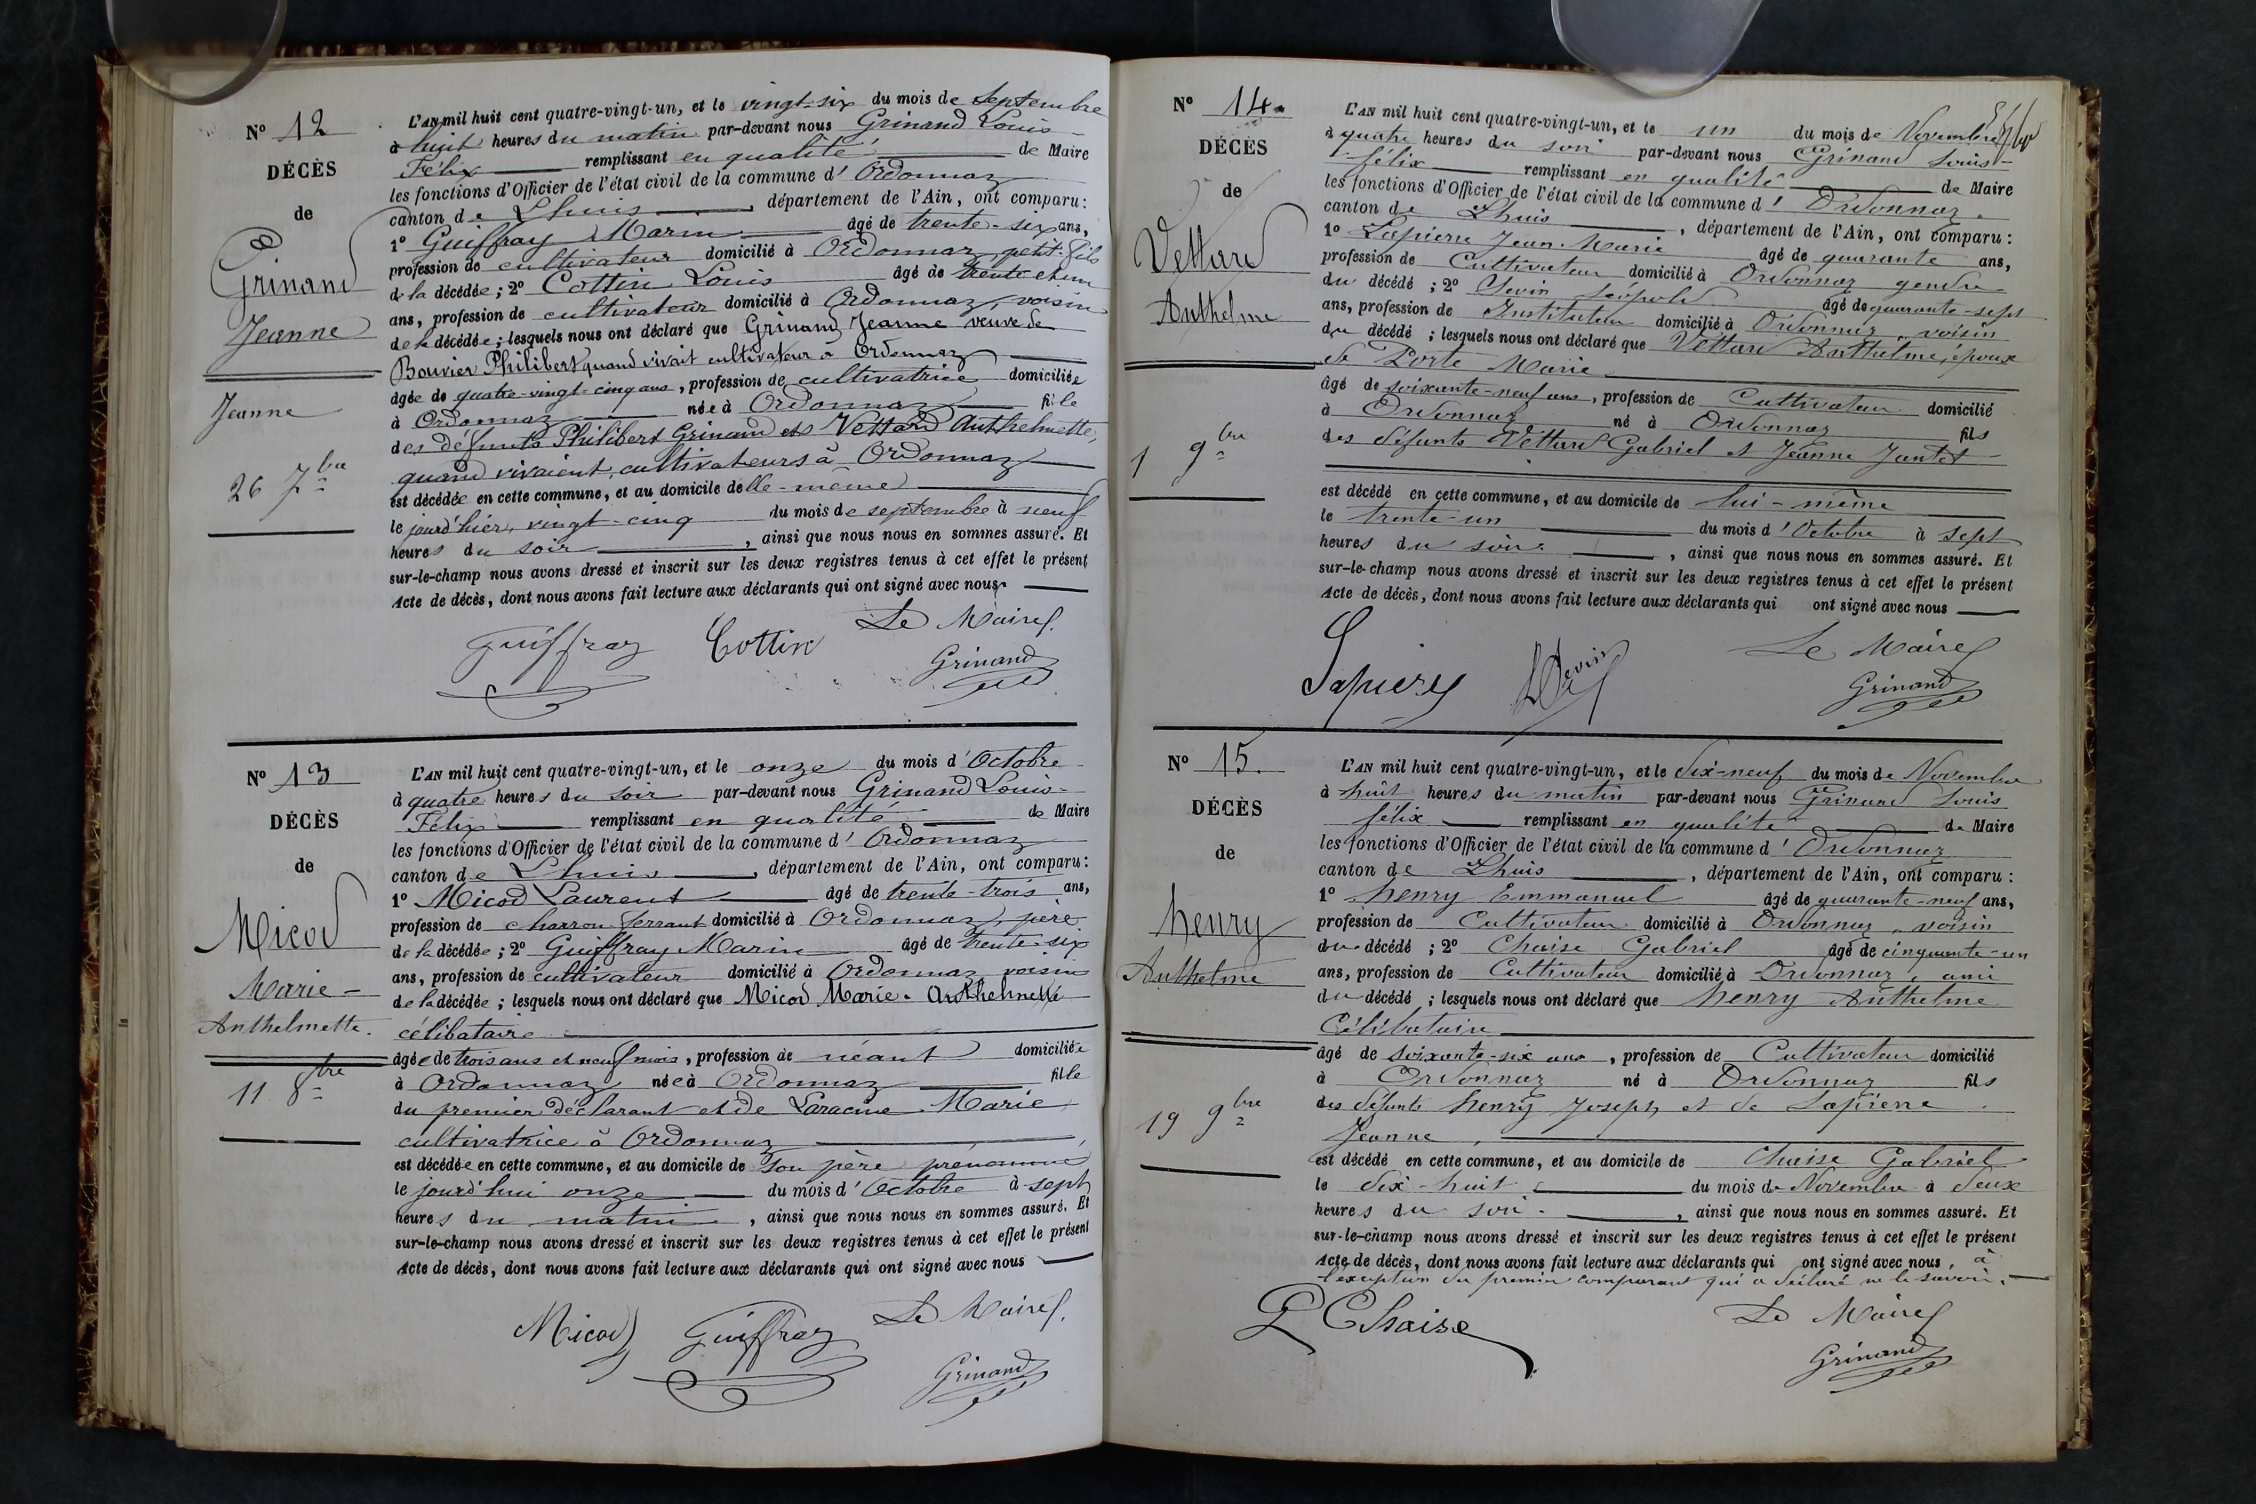 Nº 12
DÉCÈS
de
Grinand
Jeanne
Jeanne
26 7bre
L'AN mil huit cent quatre-vingt-un, et le vingt-six du mois de Septembre
à huit heures du matin par-devant nous Grinand Louis-
Félix remplissant en qualité de Maire
les fonctions d'Officier de l'état civil de la commune d' Ordonnaz
canton de Lhuis, département de l'Ain, ont comparu:
1º Guiffray Marin âgé de trente-six ans,
profession de cultivateur domicilié à Ordonnaz, petit-fils
de la décédée; 2º Cottin Louis âgé de trente et un
ans, profession de cultivateur domicilié à Ordonnaz, voisin
de la décédée; lesquels nous ont déclaré que Grinand Jeanne veuve de
Bouvier Philibert quand vivait cultivateur à Ordonnaz
âgée de quatre-vingt-cinq ans, profession de cultivatrice domiciliée
à Ordonnaz née à Ordonnaz fille
des défunts Philibert Grinand et Vettard Anthelmette,
quand vivaient cultivateurs à Ordonnaz
est décédée en cette commune, et au domicile d'elle-même
le jourd'hier, vingt-cinq du mois de septembre à neuf
heures du soir, ainsi que nous nous en sommes assuré. Et
sur-le-champ nous avons dressé et inscrit sur les deux registres tenus à cet effet le présent
Acte de décès, dont nous avons fait lecture aux déclarants qui ont signé avec nous.
Guiffray Cottin Le Maire
Grinand
Nº 13
DÉCÈS
de
Micod
Marie-
Anthelmette.
11 8bre
L'AN mil huit cent quatre-vingt-un, et le onze du mois d'Octobre
à quatre heures du soir par-devant nous Grinand Louis-
Félix remplissant en qualité de Maire
les fonctions d'Officier de l'état civil de la commune d' Ordonnaz
canton de Lhuis, département de l'Ain, ont comparu:
1º Micod Laurent âgé de trente-trois ans,
profession de charron ferrant domicilié à Ordonnaz, père
de la décédée; 2º Guiffray Marin âgé de trente-six
ans, profession de cultivateur domicilié à Ordonnaz voisin
de la décédée; lesquels nous ont déclaré que Micod Marie-Anthelmette
célibataire
âgée de trois ans et neuf mois, profession de néant domiciliée
à Ordonnaz née à Ordonnaz fille
du premier déclarant et de Laracine Marie
cultivatrice à Ordonnaz
est décédée en cette commune, et au domicile de son père prénommé
le jourd'hui onze du mois d'Octobre à sept
heures du matin, ainsi que nous nous en sommes assuré. Et
sur-le-champ nous avons dressé et inscrit sur les deux registres tenus à cet effet le présent
Acte de décès, dont nous avons fait lecture aux déclarants qui ont signé avec nous
Micod Guiffray Le Maire
Grinand
Nº 14
DÉCÈS
de
Vettard
Anthelme
1 9bre
L'AN mil huit cent quatre-vingt-un, et le un du mois de Novembre
à quatre heures du soir par-devant nous Grinand Louis-
félix remplissant en qualité de Maire
les fonctions d'Officier de l'état civil de la commune d' Ordonnaz
canton de Lhuis, département de l'Ain, ont comparu:
1º Lapierre Jean-Marie âgé de quarante ans,
profession de Cultivateur domicilié à Ordonnaz gendre
du décédé; 2º Sevin Léopold âgé de quarante-sept
ans, profession de Instituteur domicilié à Ordonnaz, voisin
du décédé; lesquels nous ont déclaré que Vettard Anthelme, époux
de Porte Marie
âgé de soixante-neuf ans, profession de Cultivateur domicilié
à Ordonnaz né à Ordonnaz fils
des défunts Vettard Gabriel et Jeanne Jantet
est décédé en cette commune, et au domicile de lui-même
le trente-un du mois d'Octobre à sept
heures du soir, ainsi que nous nous en sommes assuré. Et
sur-le-champ nous avons dressé et inscrit sur les deux registres tenus à cet effet le présent
Acte de décès, dont nous avons fait lecture aux déclarants qui ont signé avec nous
Lapierre Le Maire
Grinand
Nº 15.
DÉCÈS
de
henry
Anthelme
19 9bre
L'AN mil huit cent quatre-vingt-un, et le dix-neuf du mois de Novembre
à huit heures du matin par-devant nous Grinand Louis
félix remplissant en qualité de Maire
les fonctions d'Officier de l'état civil de la commune d' Ordonnaz
canton de Lhuis, département de l'Ain, ont comparu:
1º henry Emmanuel âgé de quarante-neuf ans,
profession de Cultivateur domicilié à Ordonnaz, voisin
du décédé; 2º Chaise Gabriel âgé de cinquante-un
ans, profession de Cultivateur domicilié à Ordonnaz, ami
du décédé; lesquels nous ont déclaré que henry Anthelme
Célibataire
âgé de soixante-six ans, profession de Cultivateur domicilié
à Ordonnaz né à Ordonnaz fils
des défunts henry Joseph et de Lapierre
Jeanne,
est décédé en cette commune, et au domicile de Chaise Gabriel
le dix-huit du mois de Novembre à deux
heures du soir, ainsi que nous nous en sommes assuré. Et
sur-le-champ nous avons dressé et inscrit sur les deux registres tenus à cet effet le présent
Acte de décès, dont nous avons fait lecture aux déclarants qui ont signé avec nous, à
l'exception du premier comparant qui a déclaré ne le savoir.
G Chaise Le Maire
Grinand